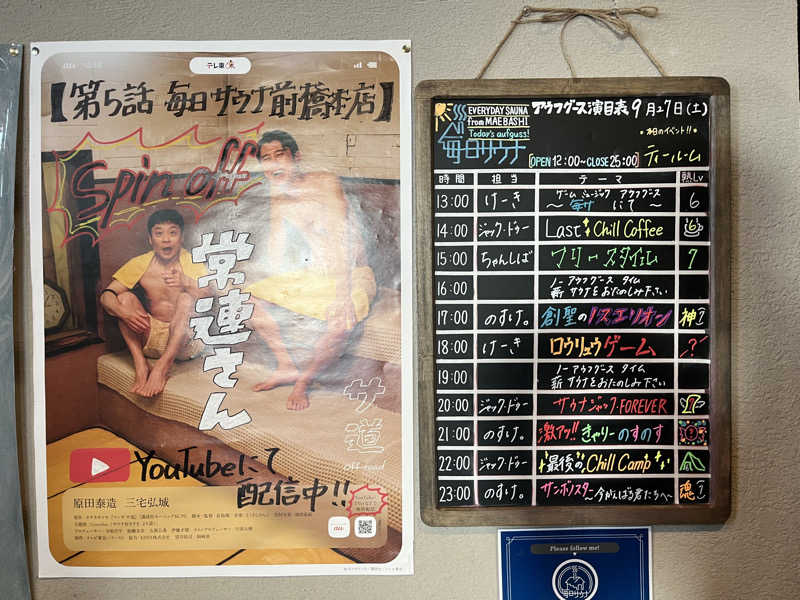 テレ東
【第5話 毎日サウナ前橋本店】
Spin off
常連さん
サ道
off-road
YouTubeにて
配信中!!
原田泰造 三宅弘城
EVERYDAY SAUNA
from MAEBASHI
Today's aufguss!
毎日サウナ
アウフグース演目表 9月27日(土)
本日のイベント!!
[OPEN 12:00~CLOSE 25:00]
ティールーム
時間 担当 テーマ 熱Lv
13:00 けーき ゲームミュージック アウフグース
~毎サにて~ 6
14:00 ジャック・ドゥー Last Chill Coffee
15:00 ちゃんしば フリースタイム 7
16:00 ノーアウフグースタイム
薪サウナをおたのしみ下さい
17:00 のすけ。 創聖のノスエリオン 神
18:00 けーき ロウリュウゲーム ?
19:00 ノーアウフグースタイム
薪サウナをおたのしみ下さい
20:00 ジャック・ドゥー サウナジャック FOREVER
21:00 のすけ。 激アツ!! きゃりーのすのす
22:00 ジャック・ドゥー 最後のChill Camp
23:00 のすけ。 サンボノスター 今がんばる君たちへ 魂
Please follow me!
毎日サウナ